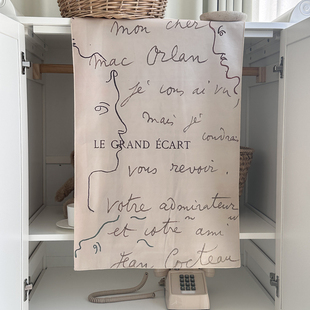 mon cher
mac Orlan
je vous ai vu,
mais je voudrais
LE GRAND ÉCART
vous revoir.
Votre admirateur
et votre ami
Jean Cocteau